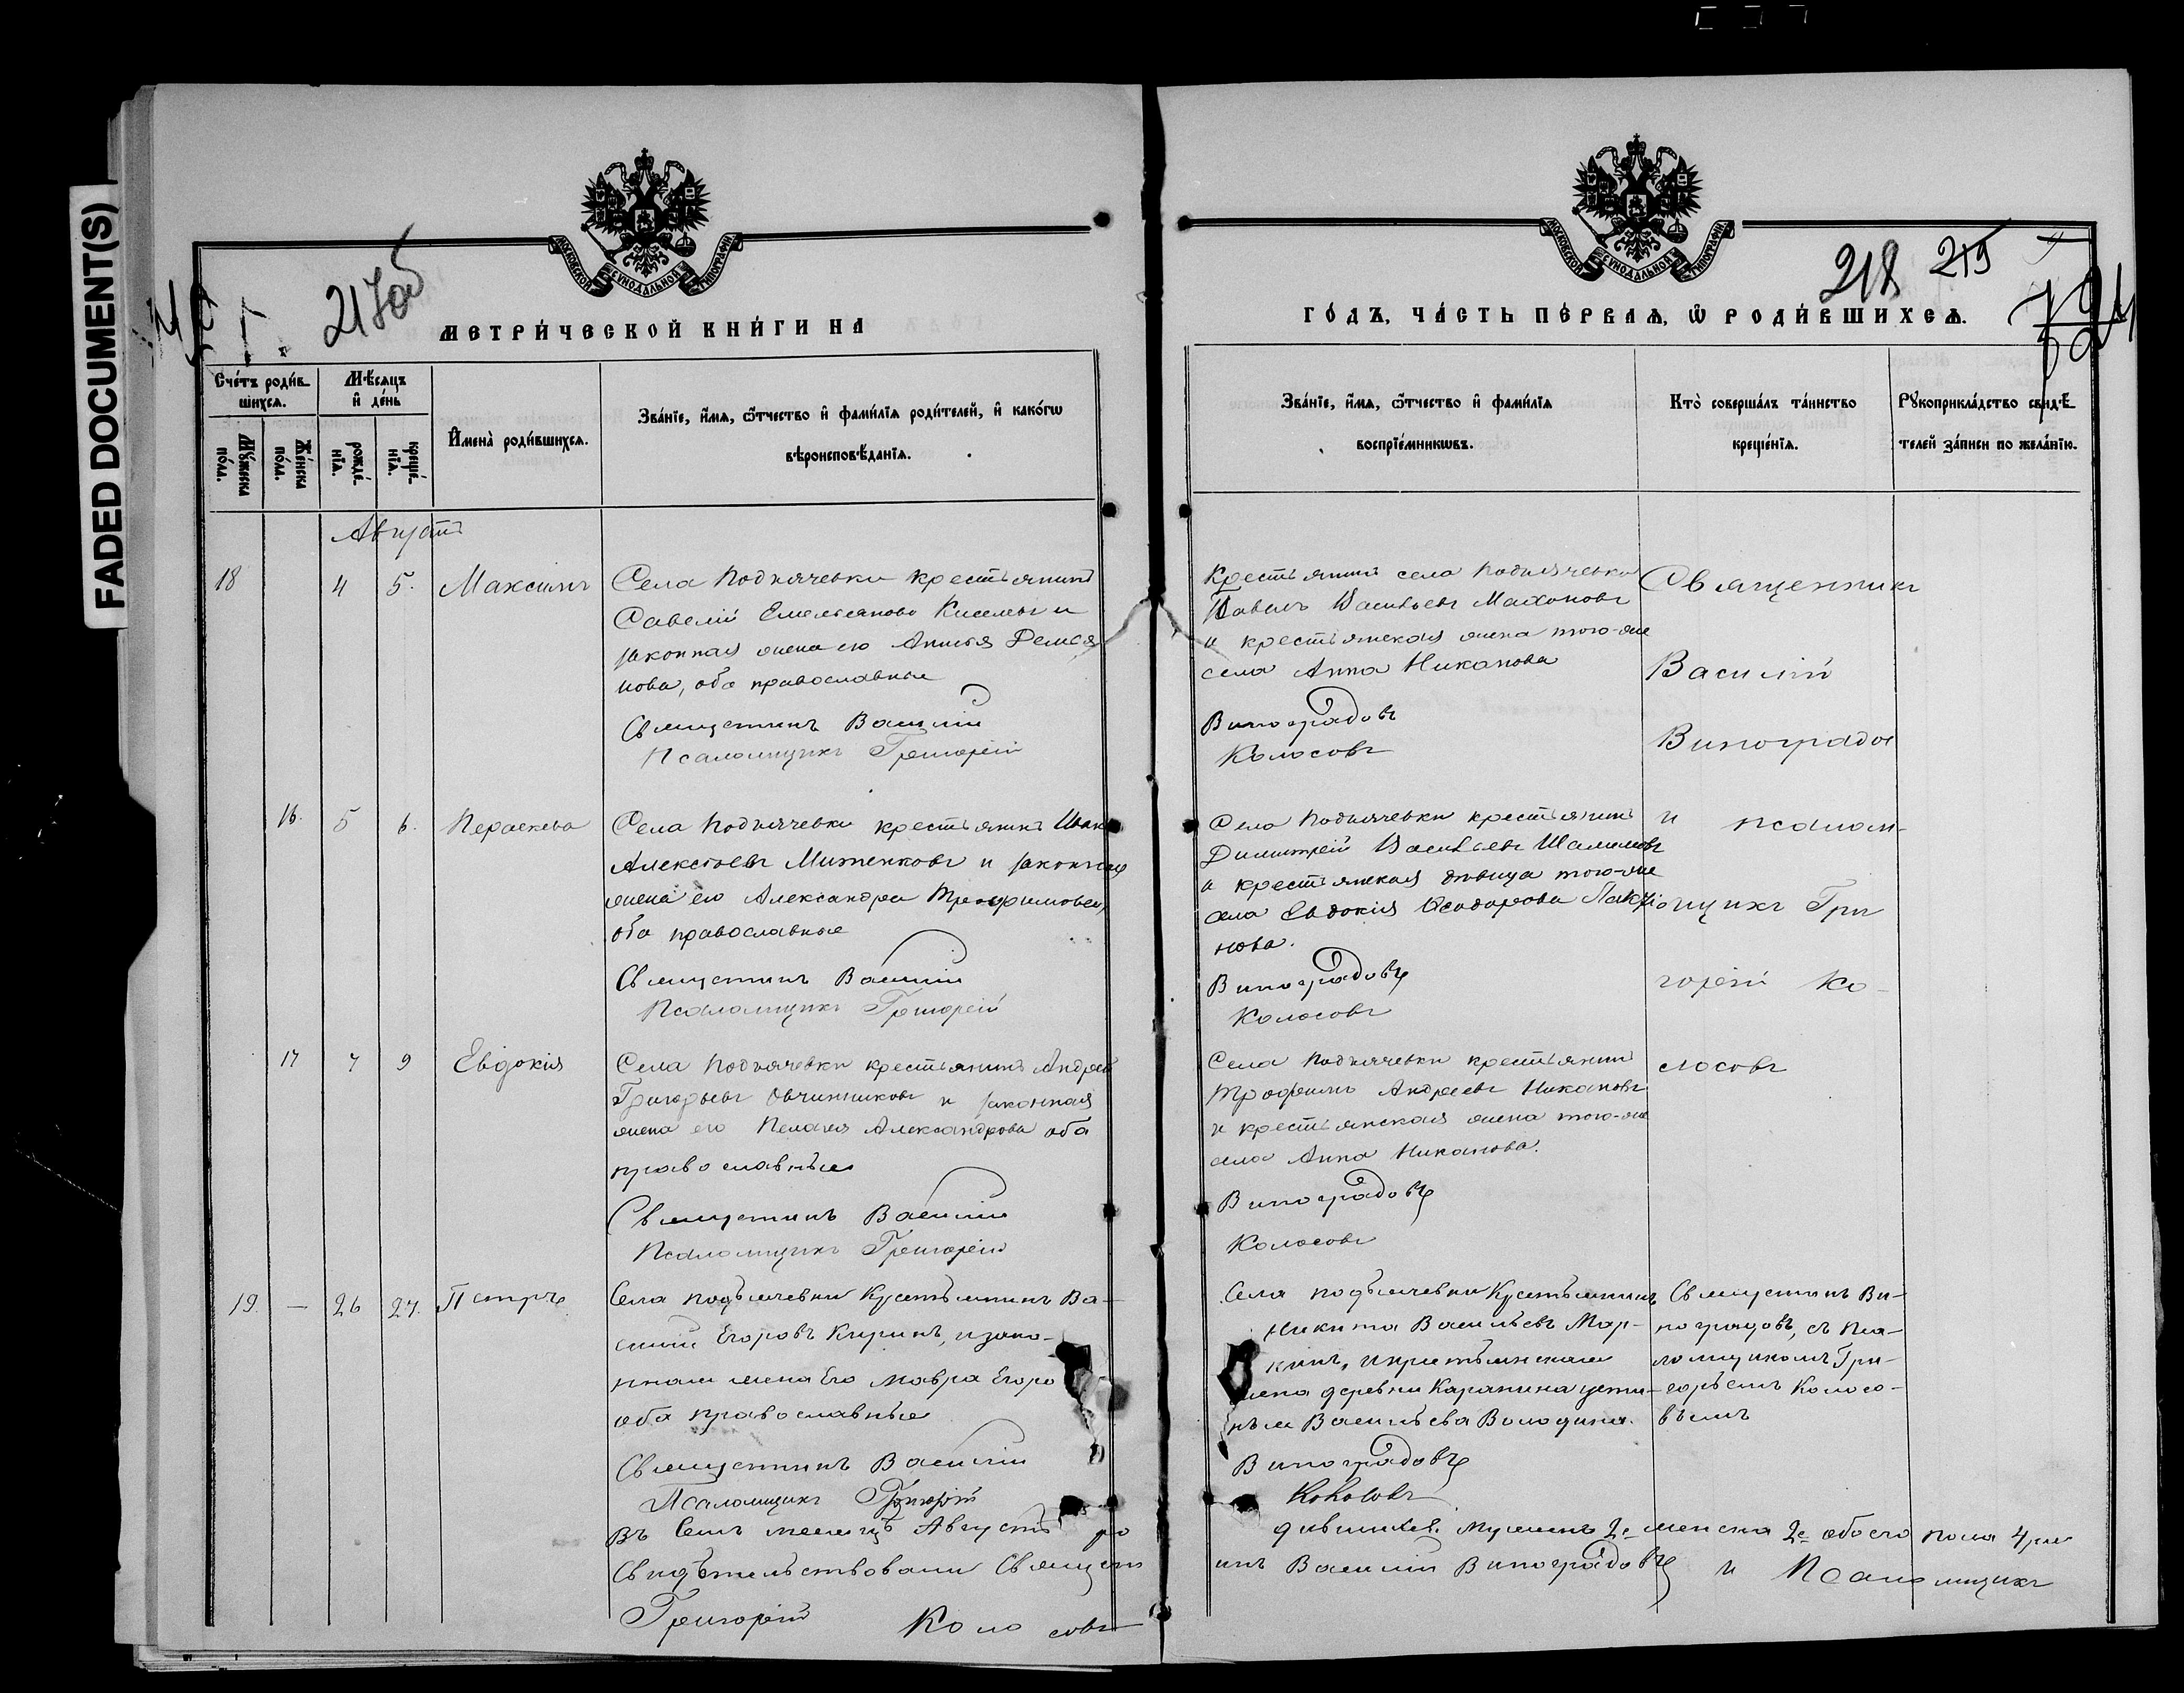 FADED DOCUMENT(S)
МОСКОВСКОЙ СѴНОДАЛЬНОЙ ТИПОГРАФІИ
МОСКОВСКОЙ СѴНОДАЛЬНОЙ ТИПОГРАФІИ
217об
218 219
МЕТРИ́ЧЕСКОЙ КНИ́ГИ НА
ГО́ДЪ, ЧА́СТЬ ПЕ́РВАѦ, Ѡ РОДИ́ВШИХСѦ.
Сче́тъ роди́в-
шихсѧ.
Мꙋ́жеска по́ла.
Же́нска по́ла.
Мѣ́сѧцъ
и҆ де́нь
рожде́-
нїѧ.
креще́-
нїѧ.
И҆мена̀ роди́вшихсѧ.
Зва́нїе, и҆́мѧ, ѻ҆́тчество и҆ фами́лїѧ роди́телей, и҆ како́гѡ
вѣроисповѣ́данїѧ.
Зва́нїе, и҆́мѧ, ѻ҆́тчество и҆ фами́лїѧ
воспрїе́мникѡвъ.
Кто̀ соверша́лъ та́инство
креще́нїѧ.
Рꙋкоприкла́дство свидѣ́-
телей за́писи по жела́нїю.
Августъ
18 4 5. Максимъ
Села Подъячевки крестьянинъ
Савелій Емельяновъ Киселевъ и
законная жена его Анисья Демья
нова, оба православные
Священникъ Василій
Псаломщикъ Григорій
Крестьянинъ села Подъячевки
Павелъ Васильевъ
и крестьянская жена того-же
села Анна Никанова
Виноградовъ
Колосовъ
Священникъ
Василій
Виноградов
16. 5 6. Параскева
Села Подъячевки крестьянинъ Иванъ
Алексѣевъ Мишенковъ и законная
жена его Александра Трофимова,
оба православные
Священникъ Василій
Псаломщикъ Григорій
Села Подъячевки крестьянинъ
Димитрій Васильевъ
и крестьянская дѣвица того-же
села Евдокія Ѳеодорова
нова.
Виноградовъ
Колосовъ
и псалом-
щикъ Гри
горій Ко-
лосовъ
17 7 9 Евдокія
Села Подъячевки крестьянинъ Андрей
Григорьевъ Овчинниковъ и законная
жена его Пелагія Александрова оба
православные
Священникъ Василій
Псаломщикъ Григорій
Села Подъячевки крестьянинъ
Трофимъ Андреевъ Никановъ
и крестьянская жена того-же
села Анна Никанова.
Виноградовъ
Колосовъ
19. — 26 27. Петръ
Села подъячевки Крестьянинъ Ва-
силій Егоровъ Киринъ, и зако-
нная жена Его Мавра Егоро
оба православные
Священникъ Василій
Псаломщикъ Григорій
Села подъячевки Крестьянинъ
Никита Васильевъ Мар-
кинъ, и крестьянская
жена деревни Карапина
Васильева Володина.
Виноградовъ
Колосовъ
Священникъ Ви-
ноградовъ, съ Пса-
ломщикомъ Гри-
горьемъ Колосо-
вымъ
Въ Семъ месяцѣ Августѣ ро
дившихся мужеска 2е женска 2е обоего пола 4ре
Свидѣтельствовали Священ
никъ Василій Виноградовъ и Псаломщикъ
Григорій Колосовъ